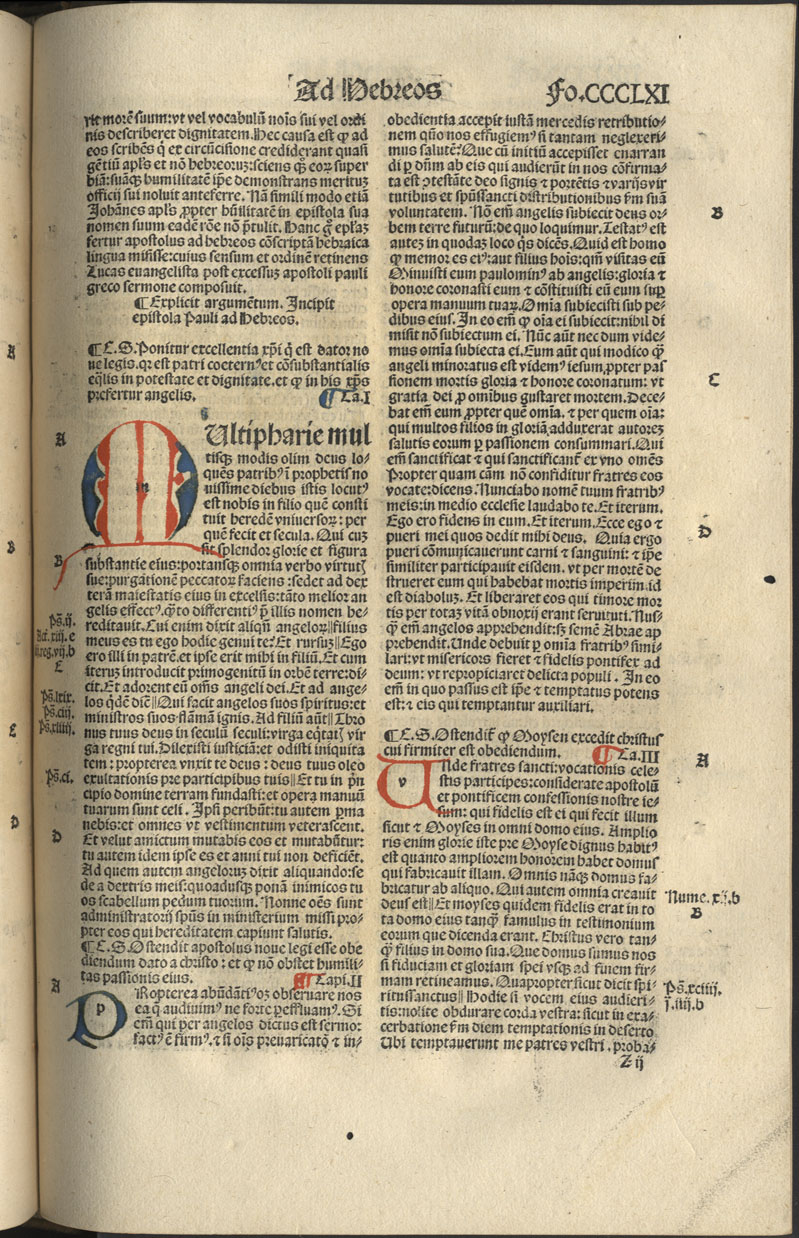 Ad Hebreos
Fo.CCCLXI
rit morē suum: vt vel vocabulū nois̄ sui vel ordi
nis describeret dignitatem. Hec causa est ꝙ ad
eos scribēs q̄ ex circūcisione crediderant quasi
gētiū apl̄s et nō hebreoruꝫ: sciens quoqꝫ eoꝝ super
biā: suāqꝫ humilitatē ip̄e demonstrans merituꝫ
officij sui noluit anteferre. Nā simili modo etiā
Johānes apl̄s ꝓpter hūilitatē in epistola sua
nomen suum eadē rōe nō p̄tulit. Hanc g̊ epl̄aꝫ
fertur apostolus ad hebreos cōscriptā hebraica
lingua misisse: cuius sensum et ordinē retinens
Lucas euangelista post excessuꝫ apostoli pauli
greco sermone composuit.
¶ Explicit argumētum. Incipit
epistola Pauli ad Hebreos.
¶ C. S. Ponitur excellentia xp̄i q̄ est dator no
ue legis. qꝛ est patri coeternꝰ et cōsubstantialis
eq̄lis in potestate et dignitate. et ꝙ in his xp̄s
prefertur angelis. ¶ Ca. I
A
m
Ultipharie mul
tisqꝫ modis olim deus lo-
quēs patribꝰ ī prophetis no
uissime diebus istis locutꝰ
est nobis in filio quē consti
tuit heredē vniuersoꝝ: per
quē fecit et secula. Qui cuꝫ
B
sit splendor glorie et figura
substantie eius: portansqꝫ omnia verbo virtutꝭ
sue: purgationē peccatoꝝ faciens: sedet ad dex
terā maiestatis eius in excelsis: tāto melior an
gelis effectꝰ. q̄to differentiꝰ p̄ illis nomen he-
reditauit. Cui enim dixit aliqn̄ angeloꝝ || filius
meus es tu ego hodie genui te? Et rursuꝫ || Ego
ero illi in patrē. et ipse erit mihi in filiū. Et cum
iteruꝫ introducit primogenitū in orbē terre: di-
cit. Et adorent eū oms̄ angeli dei. Et ad ange-
los qdē dic̄ || Qui facit angelos suos spiritus: et
ministros suos flāmā ignis. Ad filiū aūt || Thro
nus tuus deus in seculū seculi: virga eqtatꝭ vir
ga regni tui. Dilexisti iusticiā: et odisti iniquita
tem: propterea vnxit te deus: deus tuus oleo
exultationis pre participibus tuis || Et tu in p̄n
cipio domine terram fundasti: et opera manuū
tuarum sunt celi. Ipsi peribūt: tu autem ꝑma
nebis: et omnes vt vestimentum veterascent.
Et velut amictum mutabis eos et mutabūtur:
tu autem idem ipse es et anni tui non deficiēt.
Ad quem autem angeloruꝫ dixit aliquando: se
de a dextris meis: quoadusqꝫ ponā inimicos tu
os scabellum pedum tuorum. Nonne oēs sunt
administratorij spūs in ministerium missi pro-
pter eos qui hereditatem capiunt salutis.
¶ C. S. Ostendit apostolus noue legi esse obe
diendum dato a christo: et ꝙ nō obstet humili-
tas passionis eius. ¶ Capi. II
p
Ropterea abūdātiꝰ oꝫ obseruare nos
ea q̄ audiuimꝰ ne forte ꝑeffluamꝰ. Si
em̄ qui per angelos dictus est sermo:
factꝰ ē firmꝰ. ⁊ si ois̄ preuaricatō ⁊ in-
ps̄.ij.
Act.xiij.e
ij.reg.vij.b
C
ps̄.lxix.
ps̄.ciij.
ps̄.xliiij.
ps̄.ci.
D
A
obedientia accepit iustā mercedis retributio-
nem quō nos effugiemꝰ si tantam neglexeri-
mus salutē? Que cū initiū accepisset enarran
di ꝑ dn̄m ab eis qui audierūt in nos cōfirma-
ta est ꝯtestāte deo signis ⁊ portētis ⁊ varijs vir
tutibus et spūssancti distributionibus fm̄ suā
voluntatem. Nō em̄ angelis subiecit deus or-
bem terre futurū: de quo loquimur. Testatꝰ est
auteꝫ in quodaꝫ loco qs̄ dicēs. Quid est homo
ꝙ memor es eiꝰ: aut filius hois̄: qm̄ visitas eū
Minuisti eum paulominꝰ ab angelis: gloria ⁊
honore coronasti eum ⁊ cōstituisti eū eum suꝑ
opera manuum tuaꝝ. Om̄ia subiecisti sub pe-
dibus eius. In eo em̄ ꝙ oīa ei subiecit: nihil di
misit nō subiectum ei. Nūc aūt nec dum vide-
mus om̄ia subiecta ei. Eum aūt qui modico ꝙ̄
angeli minoratus est videmꝰ iesum, ꝓpter pas
sionem mortis gloria ⁊ honore coronatum: vt
gratia dei ꝓ omnibus gustaret mortem. Dece-
bat em̄ eum ꝓpter quē om̄ia. ⁊ per quem oīa:
qui multos filios in gloriā adduxerat autoreꝫ
salutis eorum ꝑ passionem consummari. Qui
em̄ sanctificat ⁊ qui sanctificant᷑ ex vno omēs
Propter quam cām non confiditur fratres eos
vocare: dicens. Nunciabo nomē tuum fratribꝰ
meis: in medio ecclesie laudabo te. Et iterum.
Ego ero fidens in eum. Et iterum. Ecce ego ⁊
pueri mei quos dedit mihi deus. Quia ergo
pueri cōmunicauerunt carni ⁊ sanguini: ⁊ ip̄e
similiter participauit eisdem. vt per mortē de
strueret eum qui habebat mortis imperiū. id
est diaboluꝫ. Et liberaret eos qui timore mor
tis per totaꝫ vitā obnoxij erant seruituti. Nus-
ꝙ̄ em̄ angelos apprehendit: sꝫ semē Abrae ap
prehendit. Unde debuit ꝑ om̄ia fratribꝰ simi-
lari: vt misericors fieret ⁊ fidelis pontifex ad
deum: vt repropiciaret delicta populi. In eo
em̄ in quo passus est ip̄e ⁊ temptatus potens
est: ⁊ eis qui temptantur auxiliari.
B
C
D
¶ C. S. Ostendit᷑ ꝙ Moysen excedit christus
cui firmiter est obediendum. ¶ Ca. III
A
v
Nde fratres sancti: vocationis cele-
stis participes: considerate apostolū
et pontificem confessionis nostre ie-
sum: qui fidelis est ei qui fecit illum
sicut ⁊ Moyses in omni domo eius. Amplio
ris enim glorie iste pre Moyse dignus habitꝰ
est quanto ampliorem honorem habet domus
qui fabricauit illam. Omnis nāqꝫ domus fa-
bricatur ab aliquo. Qui autem omnia creauit
deus est || Et moyses quidem fidelis erat in to
ta domo eius tanqꝫ̄ famulus in testimonium
eorum que dicenda erant. Christus vero tan-
ꝙ̄ filius in domo sua. Que domus sumus nos
si fiduciam et gloriam spei vsqꝫ ad finem fir-
mam retineamus. Quapropter sicut dicit spi-
ritussanctus || Hodie si vocem eius audieri-
tis: nolite obdurare corda vestra: sicut in exa-
cerbatione fm̄ diem temptationis in deserto
Ubi temptauerunt me patres vestri. proba-
Nume.xij.b
B
Ps̄.xciiij.
j.iiij.b
Z ij